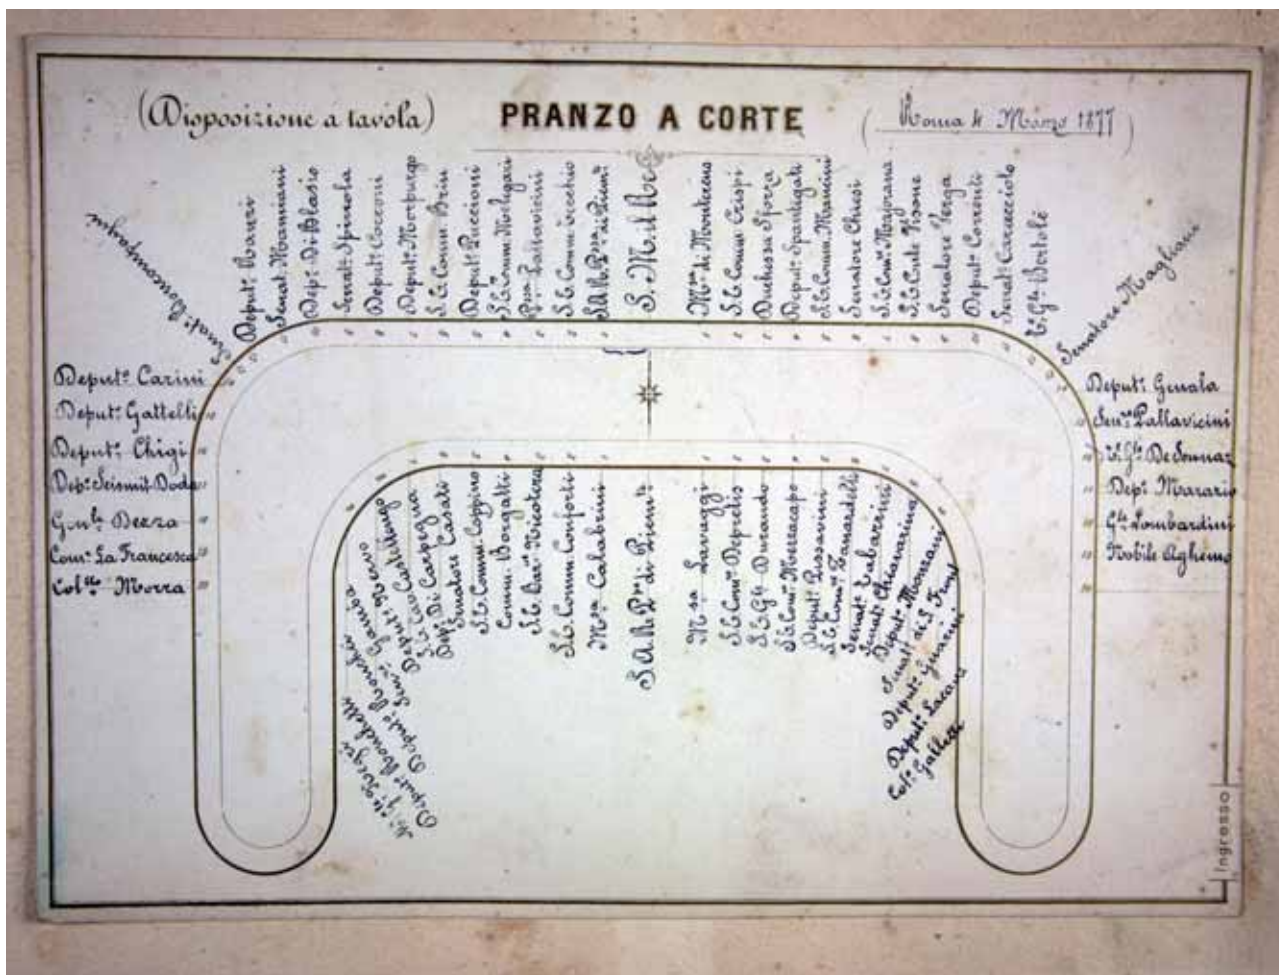 (Disposizione a tavola)
PRANZO A CORTE
(Roma 4 Marzo 1877)
Senat.e Boncompagni
Deput.o Mauri
Senat. Mamiani
Dep.o Di Blasio
Senat.e Spinola
Deput.o Cocconi
Deput.o Morpurgo
S.E. Comm. Brin
Deput.o Puccioni
S.E. Comm. Melegari
P.ssa Pallavicini
S.E. Comm. Tecchio
S.A.R. P.ssa di Piem.te
S. M. il Re
M.sa di Montereno
S.E. Comm. Crispi
Duchessa Sforza
Deput.o Spantigati
S.E. Comm. Mancini
Senatore Chiesi
S.E. Com. Majorana
S.E. Conte Visone
Senatore Verga
Deput.o Correnti
Senat.e Caracciolo
T. G.le Bertolè
Senatore Magliani
Deput.o Carini
Deput.o Gattelli
Deput.o Chigi
Dep.o Seismit Doda
Gen.le Dezza
Com. La Francesca
Col.llo Morra
Deput.o Genala
Sen.re Pallavicini
T. G.le De Sonnaz
Dep.o Marazio
G.le Lombardini
Nobile Aghemo
Deput.o Ronchetti
Deput.o Ronchei
Deput.o Nervo
Dep.o Di Carpegna
Senatore Casati
S.E. Comm. Coppino
Comm. Borgatti
S.E. Bar. Nicotera
S.E. Comm. Conforti
M.sa Calabrini
S.A.R. P.pe di Piem.te
M.sa Lavaggi
S.E. Com. Depretis
S.E. G.le Durando
S.E. Com. Mezzacapo
Deput.o Pissavini
S.E. Com. Zanardelli
Senat.e Tabarrini
Senat. Chiavarina
Deput.o Monzani
Senat.e di S. Front
Deput.o Guarini
Deput.o Lacava
Col. Galletti
Ingresso